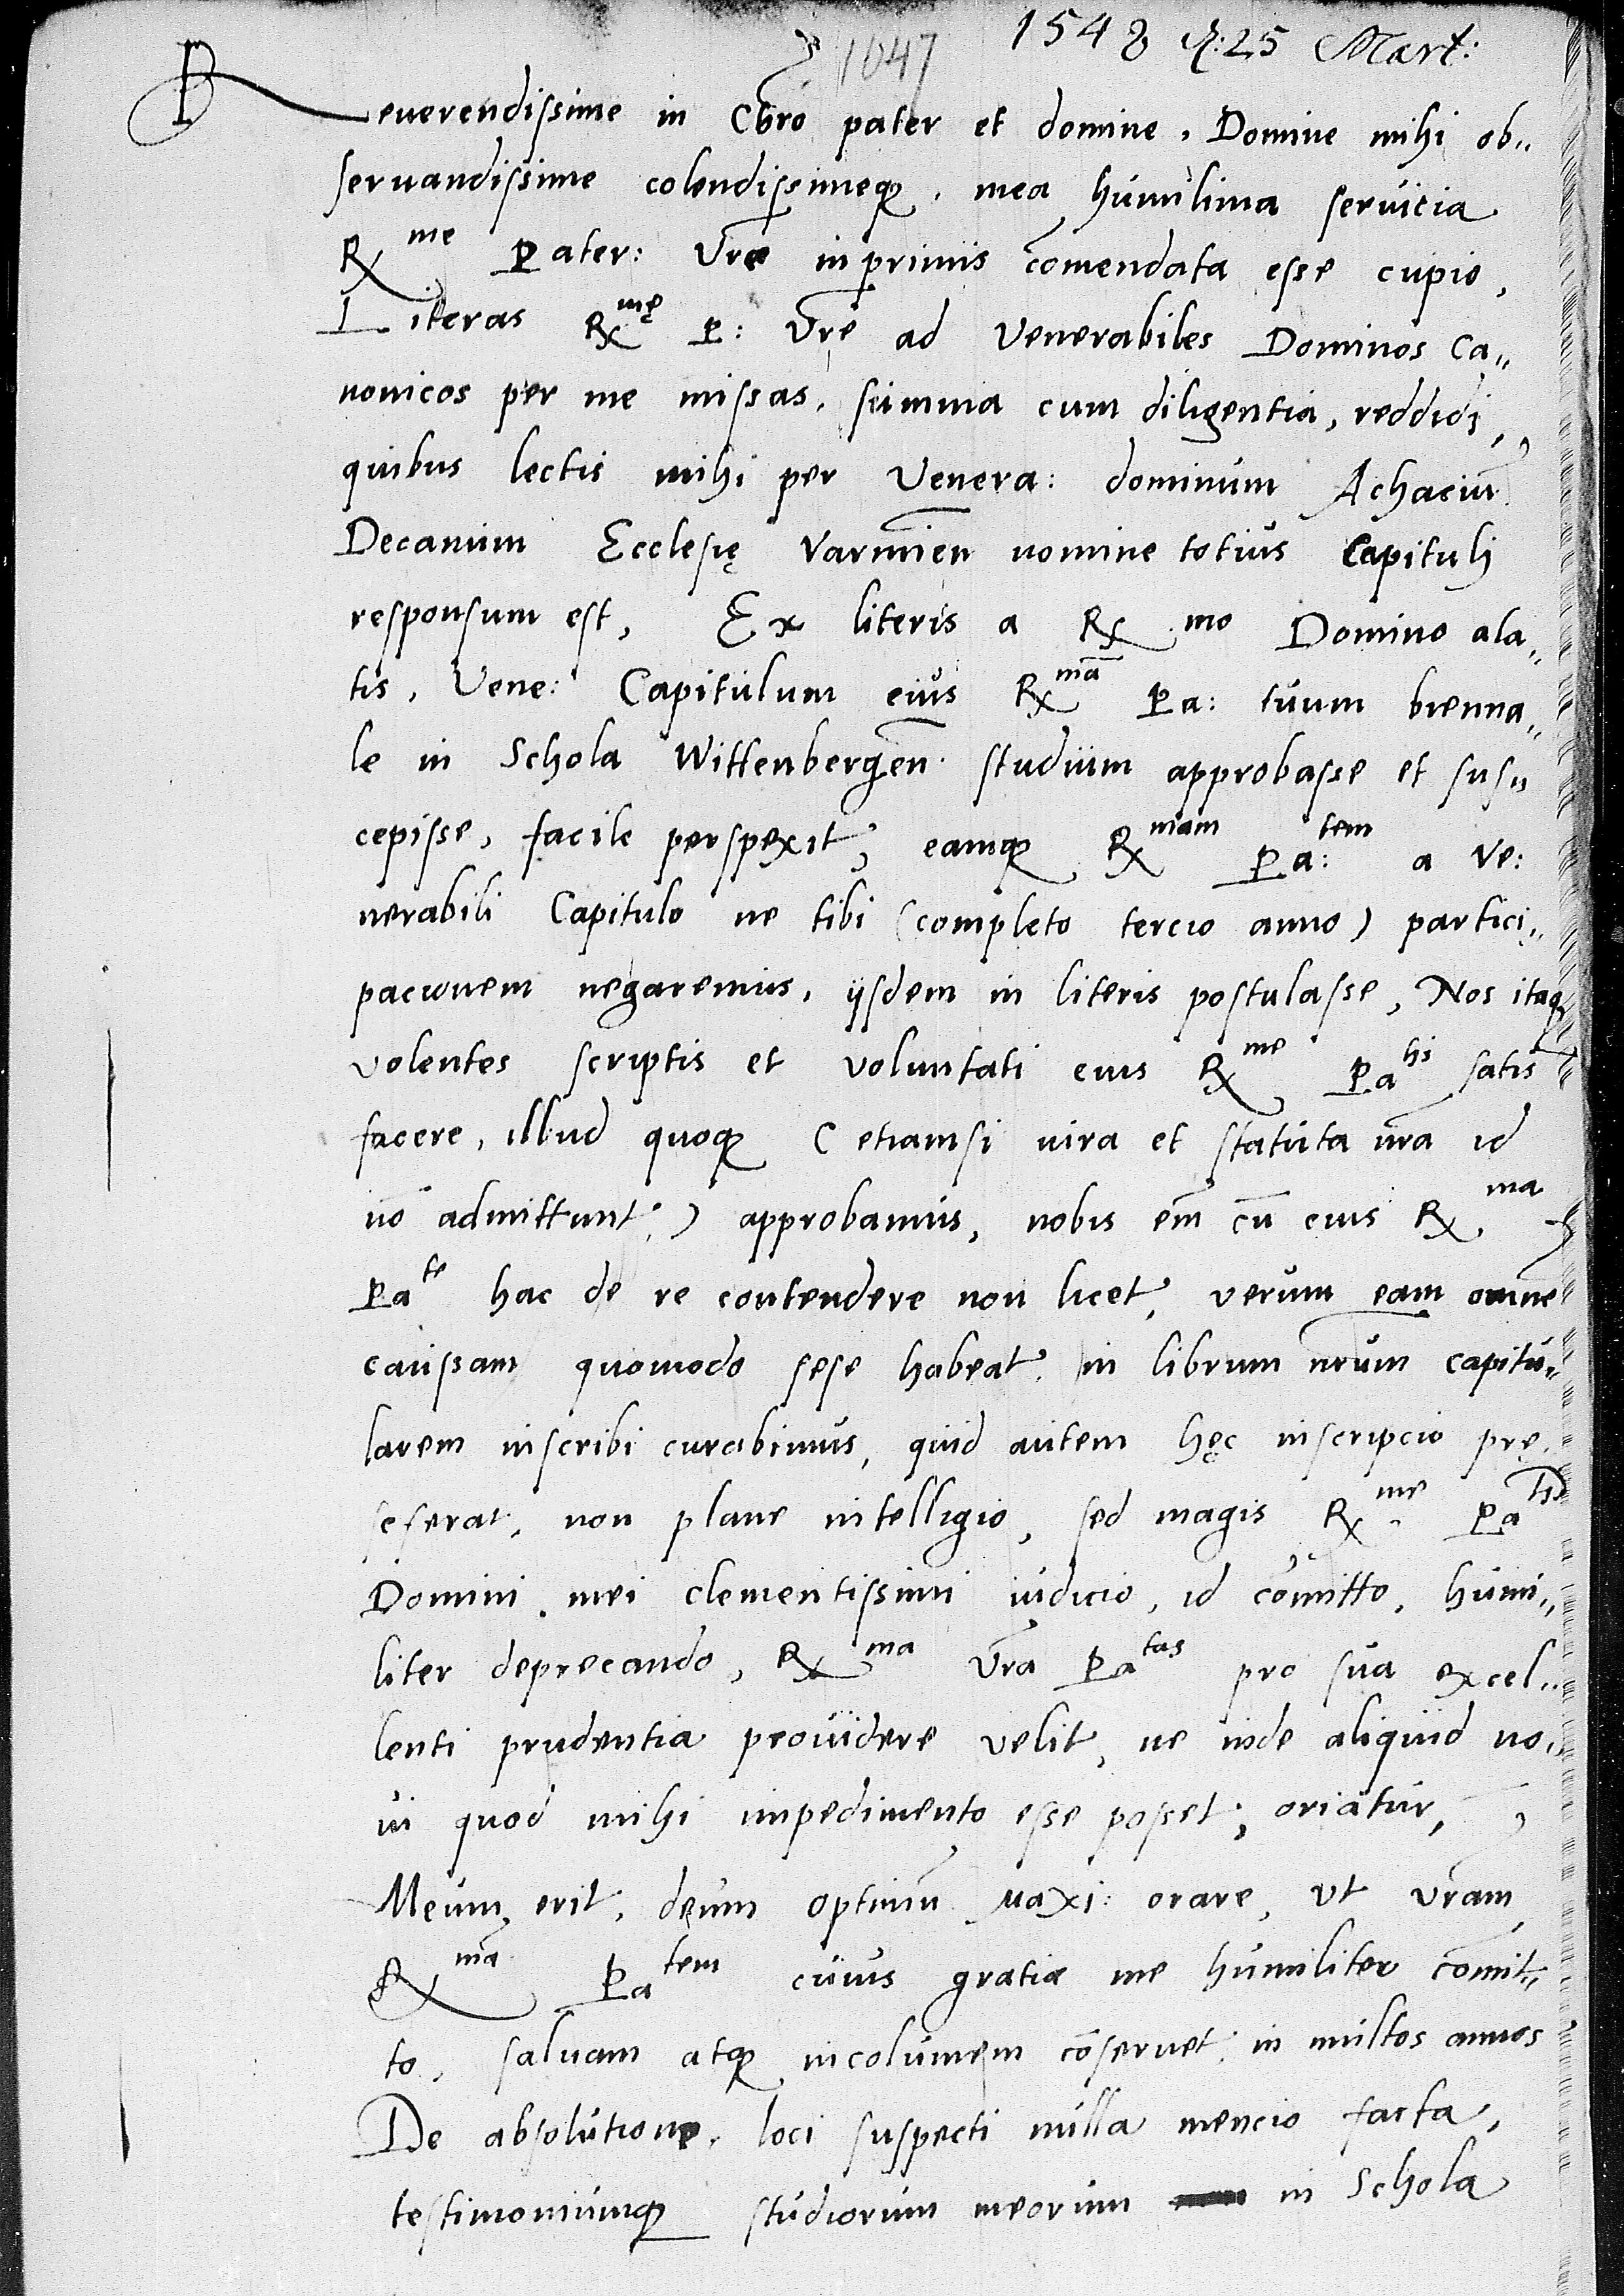 1548 d: 25 Mart:
1047
Reuerendissime in Chro pater et domine, Domine mihi ob„
seruandissime colendissimeq, mea humilima seruicia
Rme Pater: Vre inprimis comendata esse cupio,
Literas Rmę P: Vre ad Venerabiles Dominos Ca„
nonicos per me missas, summa cum diligentia, reddidi,
quibus lectis mihi per Venera: dominum Achaciu
Decanum Ecclesię Varmien nomine totius Capituli
responsum est, Ex literis a R mo Domino ala„
tis, Vene: Capitulum eius Rma Pa: tuum bienna„
le in Schola Wittenbergen studium approbasse et sus„
cepisse, facile perspexit, eamq Rmam Pa:tem a Ve:
nerabili Capitulo ne tibi (completo tercio anno) partici„
pacionem negaremus, ijsdem in literis postulasse, Nos itaq
volentes scriptis et voluntati eius Rme Patis satis
facere, illud quoq (etiamsi iura et statuta nra id
no admittunt,) approbamus, nobis em cu eius R ma
Pate hac de re contendere non licet, verum eam omne
caussam quomodo sese habeat, in librum nrum capitu„
larem inscribi curabimus, quid autem hęc inscripcio prę
se ferat, non plane intelligio, sed magis Rme Patis
Domini mei clementissimi iudicio, id comitto, humi„
liter deprecando, Rma Vra Patas pro sua excel„
lenti prudentia prouidere velit, ne inde aliquid no„
ui quod mihi impedimento esse posset, oriatur,
Meum erit, deum optimu Maxi: orare, vt vram
Rma Patem cuius gratiæ me humiliter comit„
to, saluam atq incolumem coseruet in multos annos
De absolutione, loci suspecti nulla mencio facta,
testimoniumq studiorum meorum in Schola